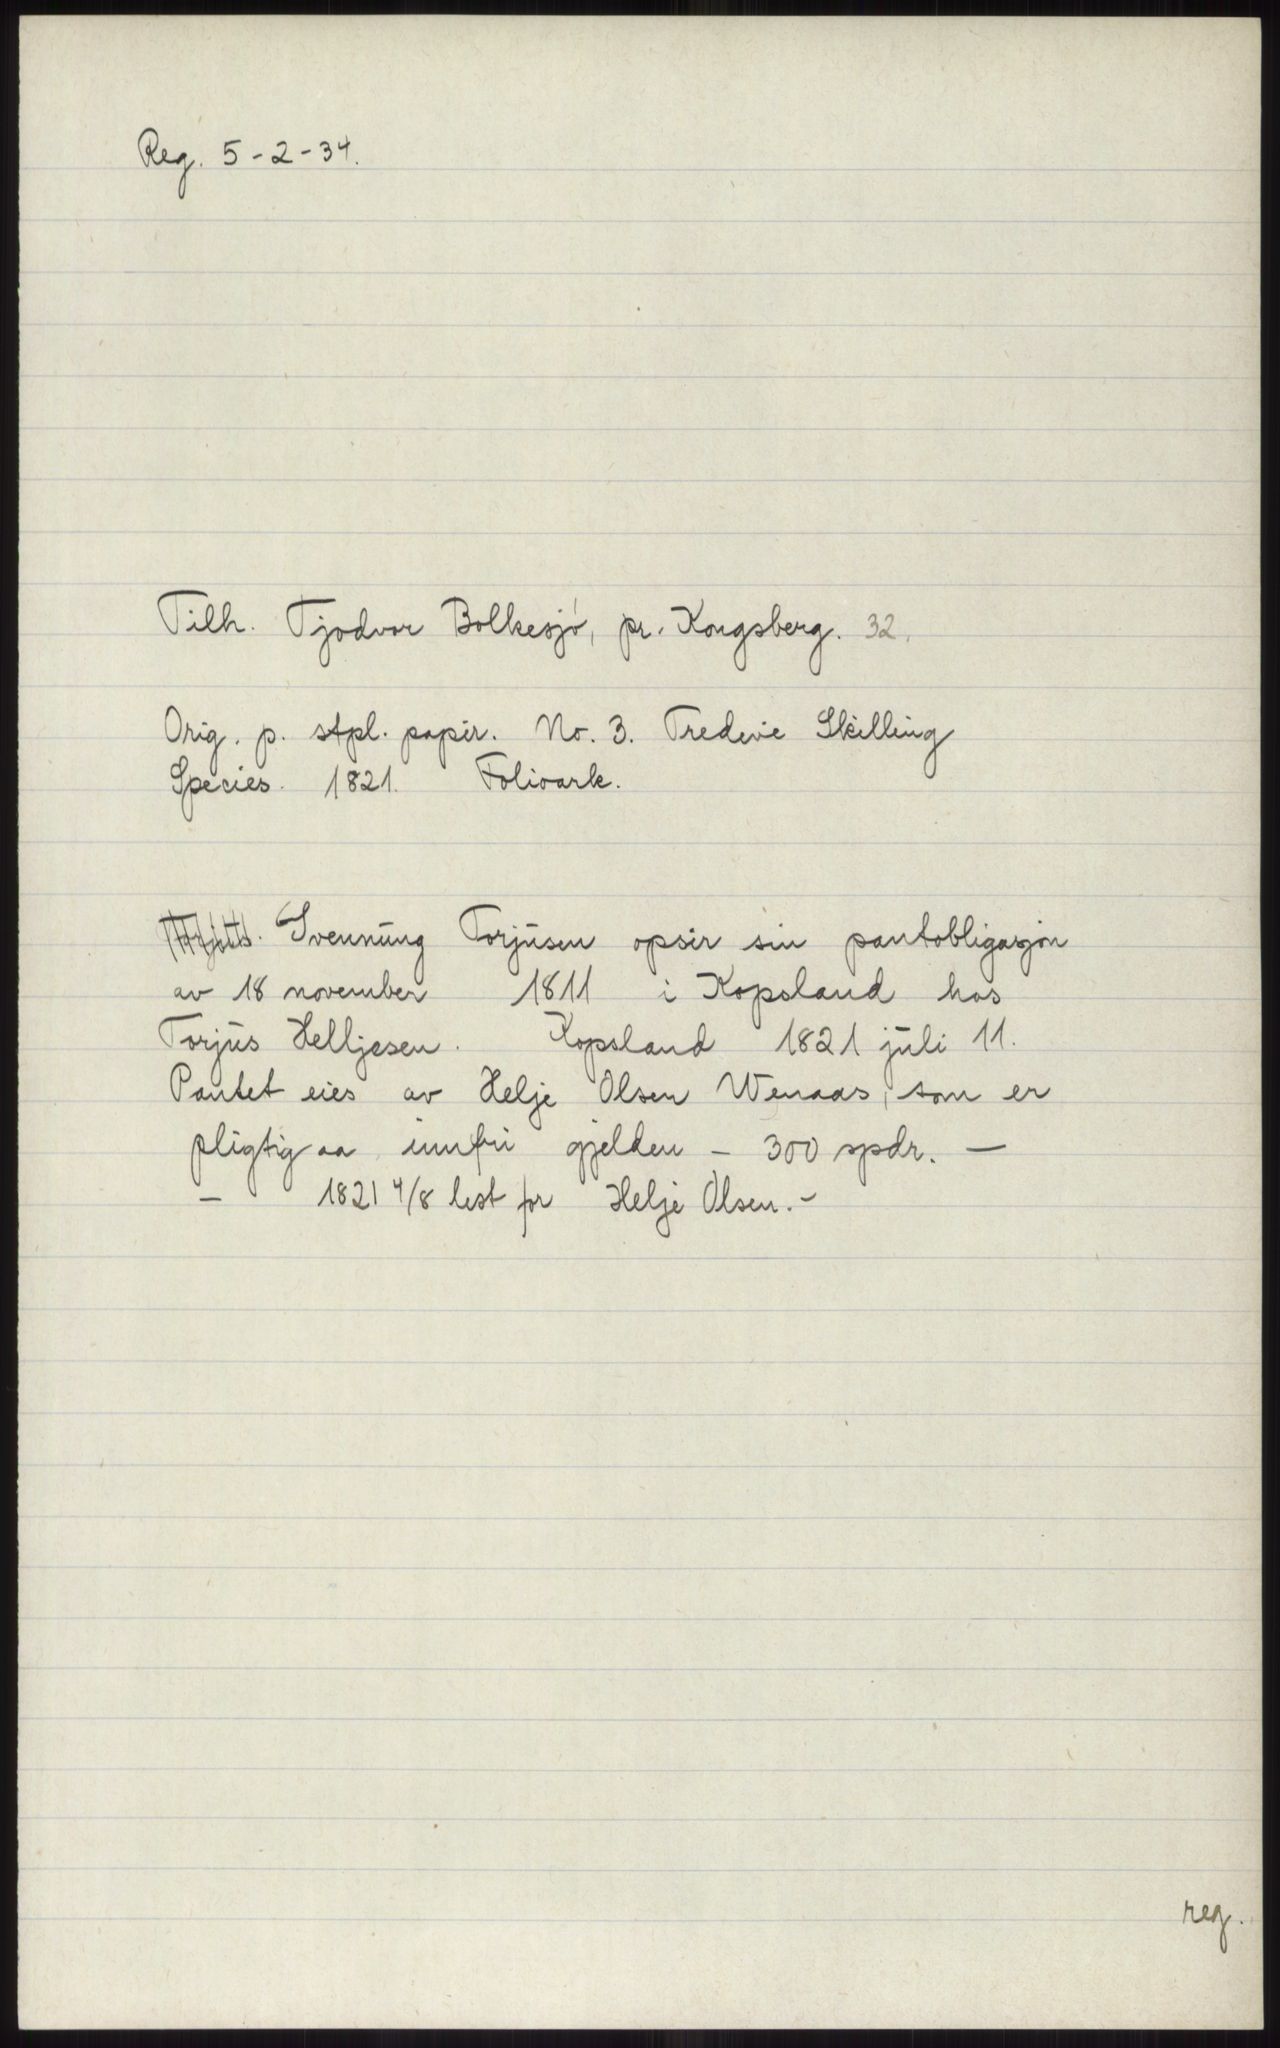 Reg. 5-2-34.
Tilh. Tjodvor Bolkesjó, pr. Kongsberg. 32.
Orig. p. stpl. papir. No. 3. Tredevie Skilling
Species. 1821. Folioark.
Svennung Torjusen opsir sin pantobligasjon
av 18 november 1811 i Kopsland hos
Torjus Helljesen. Kopsland 1821 juli 11.
Pantet eies av Helje Olsen Wenaas, som er
pligtig aa innfri gjelden - 300 spdr. —
— 1821 4/8 lest for Helje Olsen. -
reg.